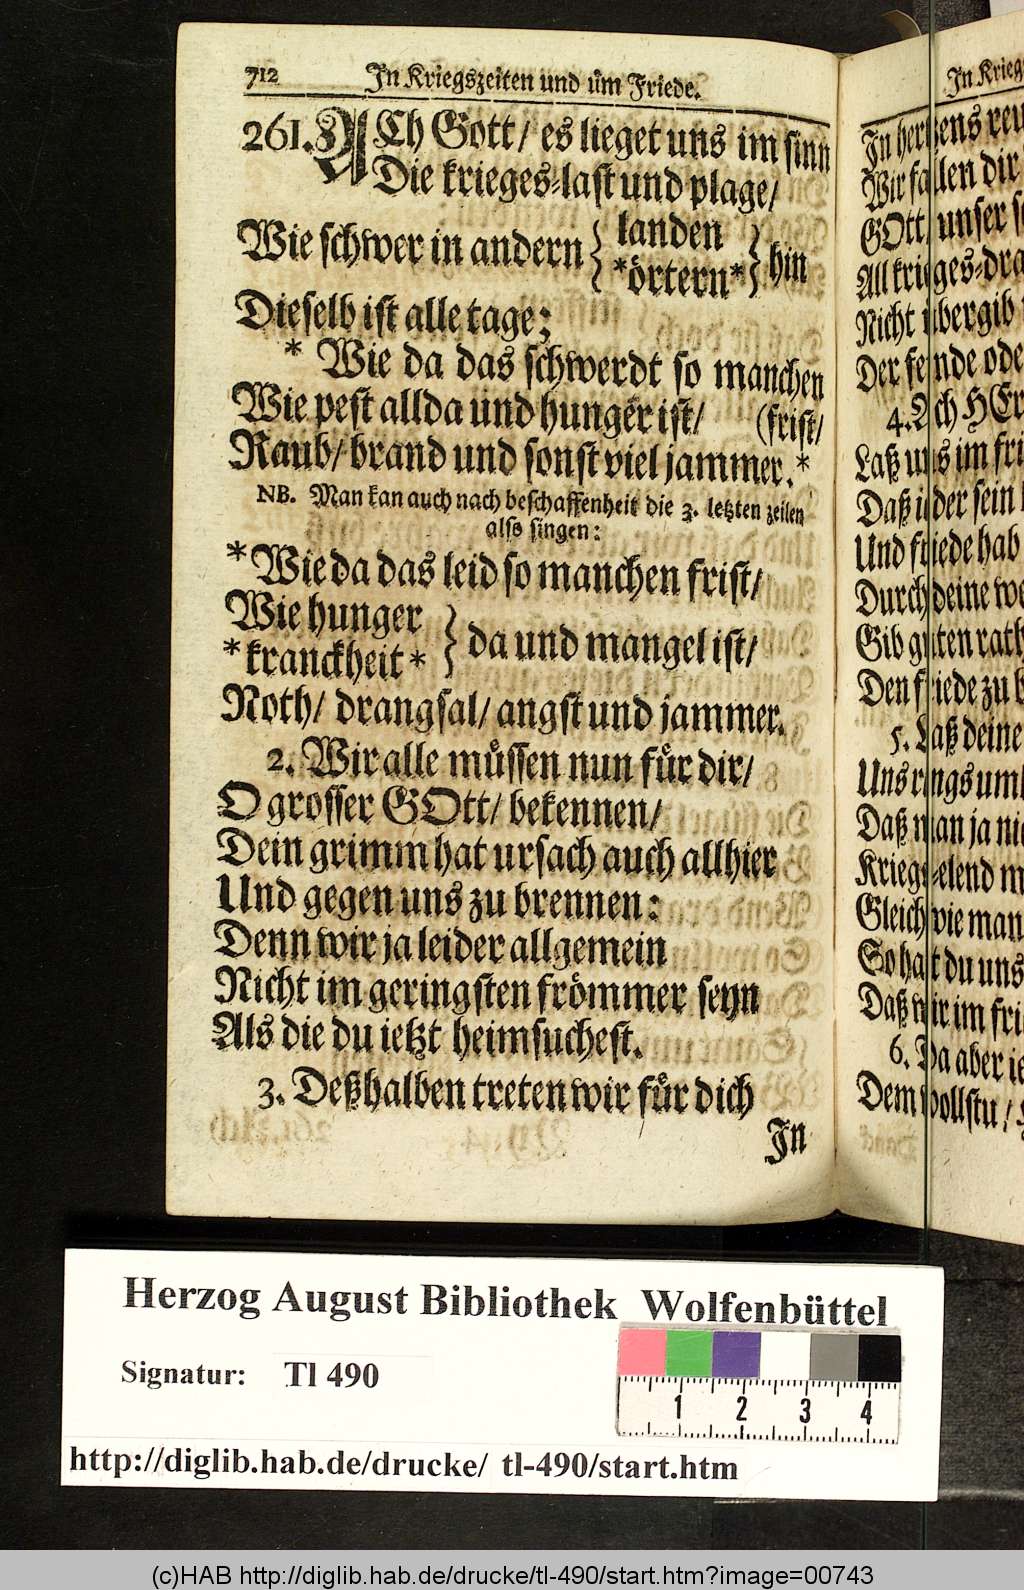 712 In Kriegszeiten und üm Friede.
261. ACh Gott/ es lieget uns im sinn
Die krieges-last und plage/
Wie schwer in andern { landen } hin
*örtern*
Dieselb ist alle tage;
* Wie da das schwerdt so manchen
Wie pest allda und hunger ist/ (frist/
Raub/ brand und sonst viel jammer.*
NB. Man kan auch nach beschaffenheit die 3. letzten zeilen
also singen:
*Wie da das leid so manchen frist/
Wie hunger
*kranckheit* } da und mangel ist/
Noth/ drangsal/ angst und jammer.
2. Wir alle müssen nun für dir/
O grosser GOtt/ bekennen/
Dein grimm hat ursach auch allhier
Und gegen uns zu brennen:
Denn wir ja leider allgemein
Nicht im geringsten frömmer seyn
Als die du ietzt heimsuchest.
3. Deßhalben treten wir für dich
In
In Krieg
In hertzens reu
Wir fallen dir
GOtt unser
All krieges-dra
Nicht übergib
Der feinde ode
4. Ach HEr
Laß uns im fri
Daß ieder sein
Und friede hab
Durch deine we
Gib guten rath
Den friede zu
5. Laß deine
Uns rings umh
Daß man ja nic
Krieges-elend m
Gleich wie man
So hast du uns
Daß wir im fri
6. Da aber ie
Dem wollstu/
Herzog August Bibliothek Wolfenbüttel
Signatur: Tl 490
1 2 3 4
http://diglib.hab.de/drucke/ tl-490/start.htm
(c)HAB http://diglib.hab.de/drucke/tl-490/start.htm?image=00743